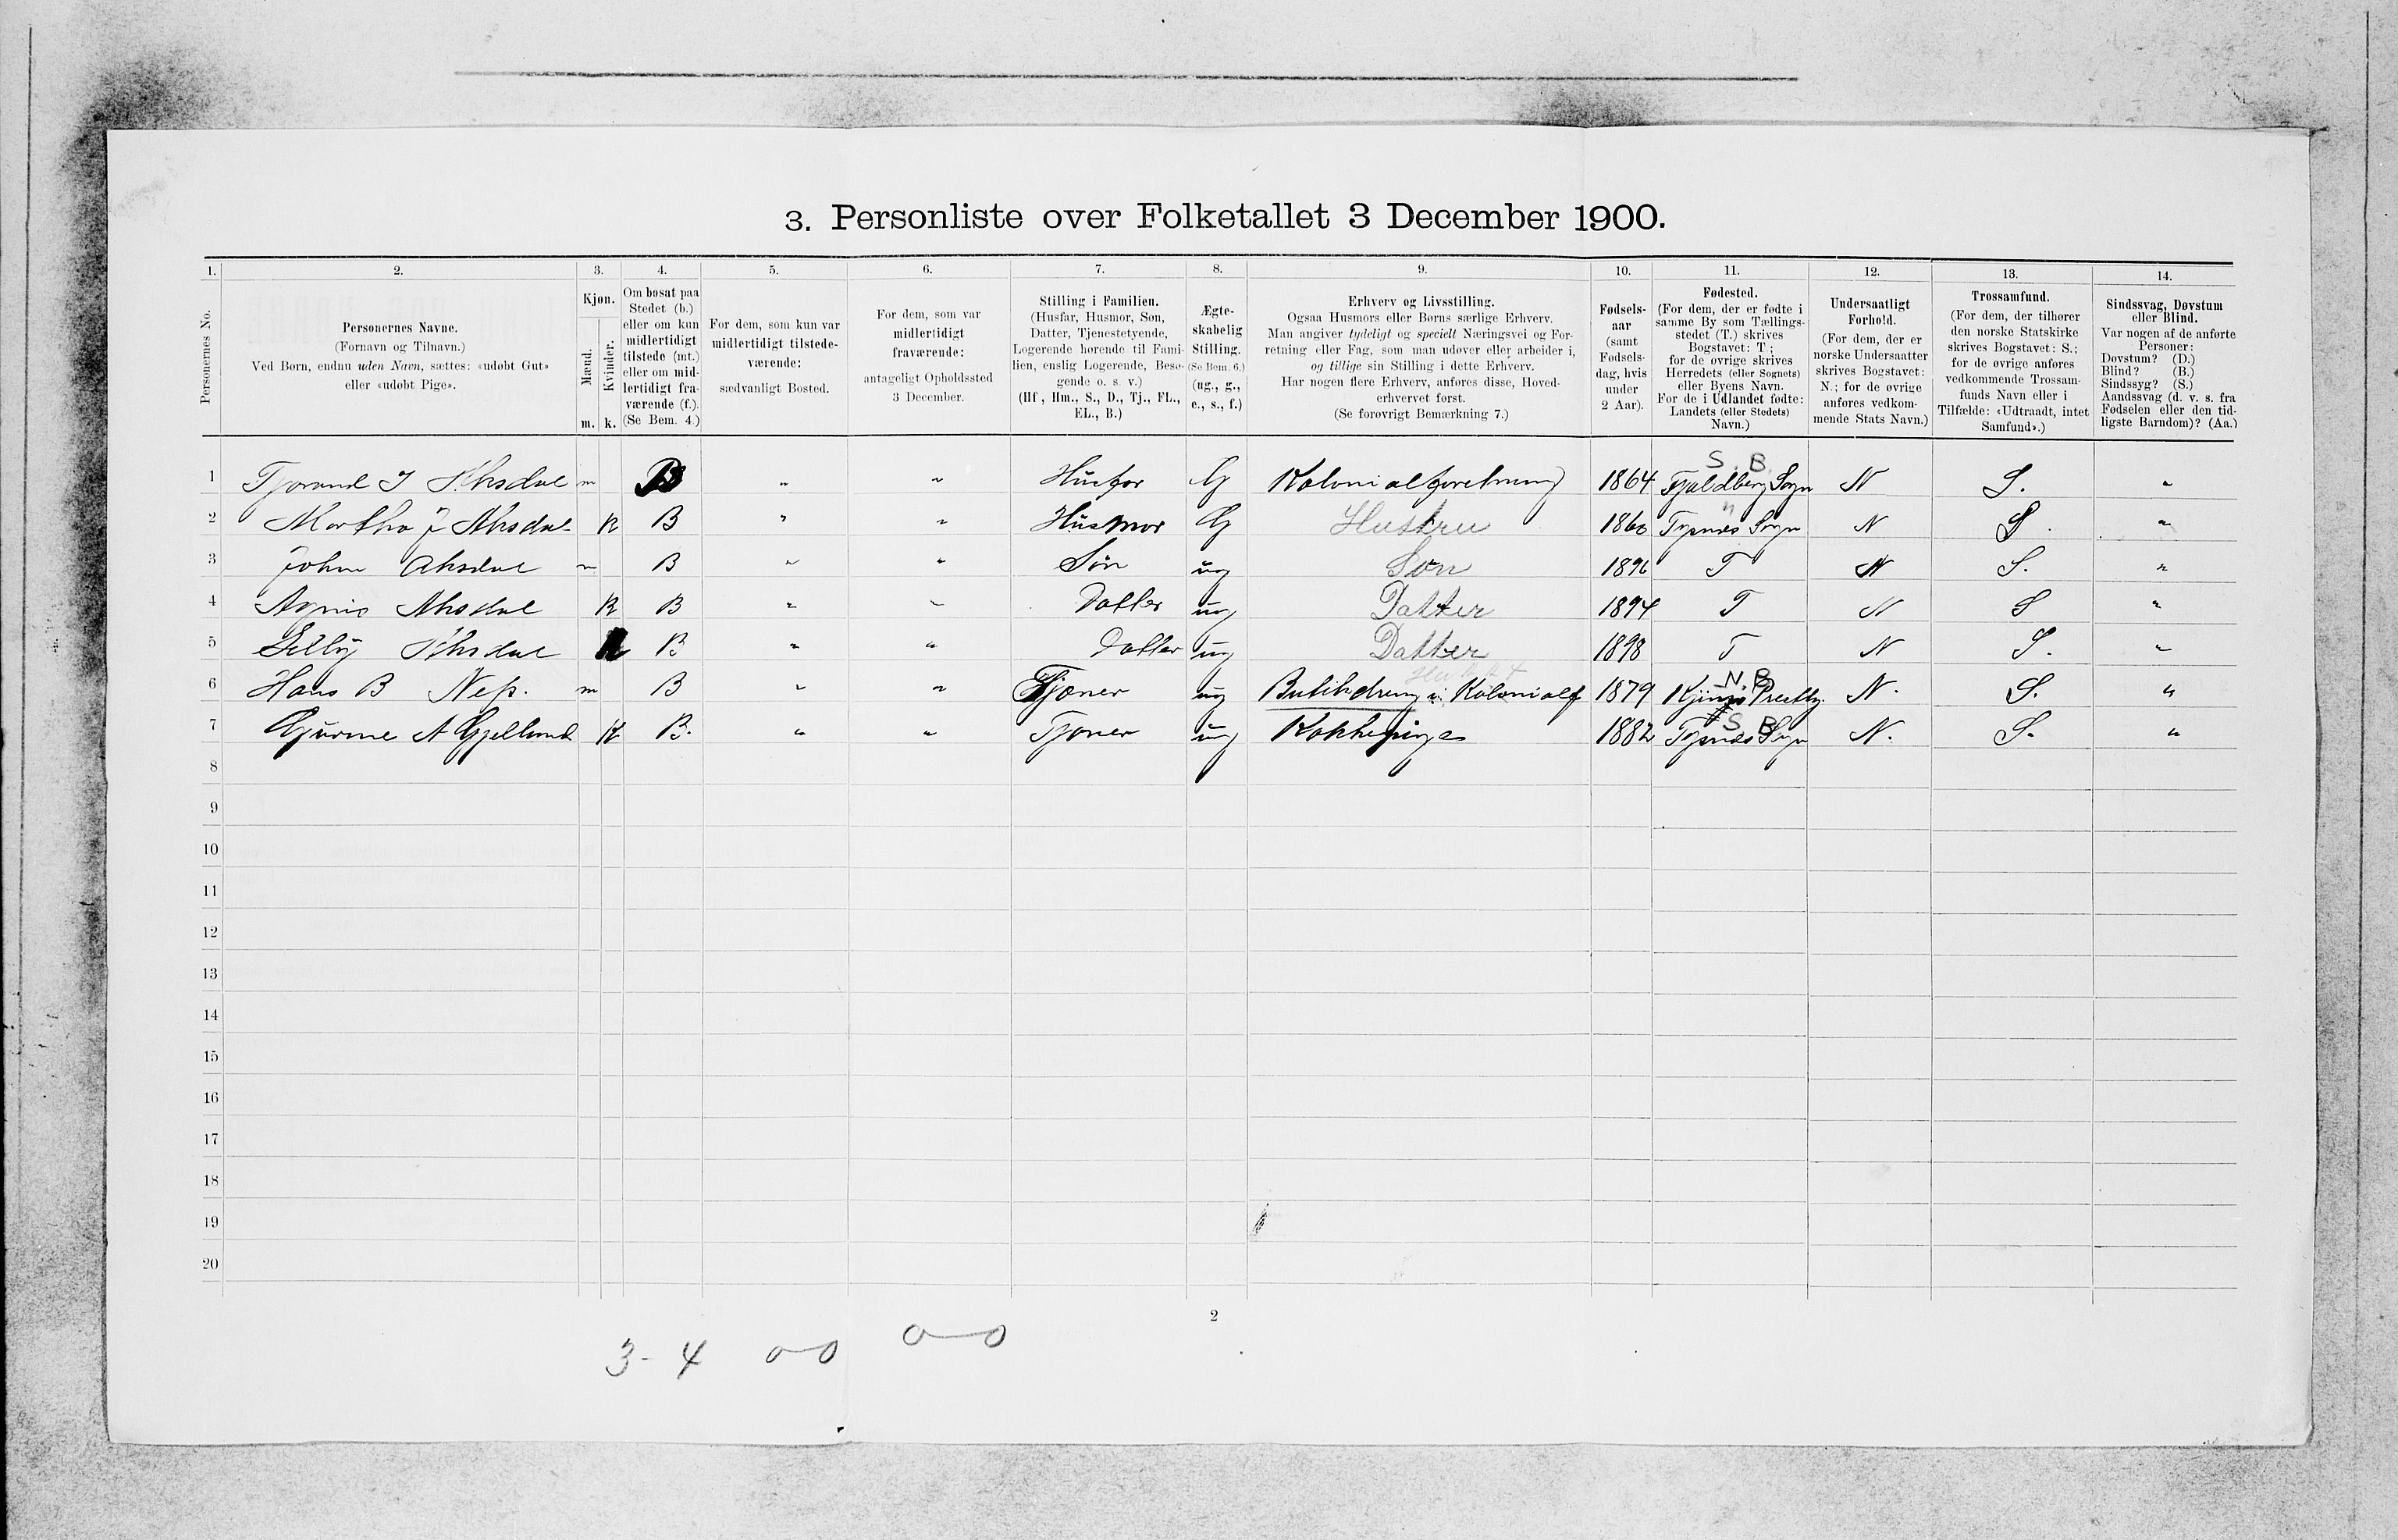 3. Personliste over Folketallet 3 December 1900.
1. 2. 3. 4. 5. 6. 7. 8. 9. 10. 11. 12. 13. 14.
Personernes No.
Personernes Navne.
(Fornavn og Tilnavn.)
Ved Børn, endnu uden Navn, sættes: «udøbt Gut»
eller «udøbt Pige».
Kjøn.
Mænd.
Kvinder.
m. k.
Om bosat paa
Stedet (b.)
eller om kun
midlertidigt
tilstede (mt.)
eller om mid-
lertidigt fra-
værende (f.).
(Se Bem. 4.)
For dem, som kun var
midlertidigt tilstede-
værende:
sædvanligt Bosted.
For dem, som var
midlertidigt
fraværende:
antageligt Opholdssted
3 December.
Stilling i Familien.
(Husfar, Husmor, Søn,
Datter, Tjenestetyende,
Logerende hørende til Fami-
lien, enslig Logerende, Besø-
gende o. s. v.)
(Hf., Hm., S., D., Tj., FL.,
EL., B.)
Ægte-
skabelig
Stilling.
(Se Bem. 6.)
(ug., g.,
e., s., f.)
Erhverv og Livsstilling.
Ogsaa Husmors eller Børns særlige Erhverv.
Man angiver tydeligt og specielt Næringsvei og For-
retning eller Fag, som man udøver eller arbeider i,
og tillige sin Stilling i dette Erhverv.
Har nogen flere Erhverv, anføres disse, Hoved-
erhvervet først.
(Se forøvrigt Bemærkning 7.)
Fødsels-
aar
(samt
Fødsels-
dag, hvis
under
2 Aar).
Fødested.
(For dem, der er fødte i
samme By som Tællings-
stedet (T.) skrives
Bogstavet: T;
for de øvrige skrives
Herredets (eller Sognets)
eller Byens Navn.
For de i Udlandet fødte:
Landets (eller Stedets)
Navn.)
Undersaatligt
Forhold.
(For dem, der er
norske Undersaatter
skrives Bogstavet:
N.; for de øvrige
anføres vedkom-
mende Stats Navn.)
Trossamfund.
(For dem, der tilhører
den norske Statskirke
skrives Bogstavet: S.;
for de øvrige anføres
vedkommende Trossam-
funds Navn eller i
Tilfælde: «Udtraadt, intet
Samfund».)
Sindssvag, Døvstum
eller Blind.
Var nogen af de anførte
Personer:
Døvstum? (D.)
Blind? (B.)
Sindssyg? (S.)
Aandssvag (d. v. s. fra
Fødselen eller den tid-
ligste Barndom)? (Aa.)
S. B.
1 Tjorand J Ahsdal m B " " Husfar G Kolonialforetning 1864 Fjeldberg Sogn N S. "
2 Martha J Ahsdal k B " " Husmor G Hustru 1860 Tysnes Sogn N S. "
3 Johan Ahsdal m B " " Søn ug Søn 1896 T N S. "
4 Agnis Ahsdal k B " " Datter ug Datter 1894 T N S "
5 Selby Ahsdal k B " " Datter ug Datter 1898 T N S. "
N. B.
6 Hans B m B " " Tjener ug Butikdreng i Kolonialf 1879 N. S. "
S B
7 A Gjellund k B. " " Tjener ug Kokkepige 1882 Tysnes Sogn N. S. "
8
9
10
11
12
13
14
15
16
17
18
19
20
2
3-4 0-0 0-0